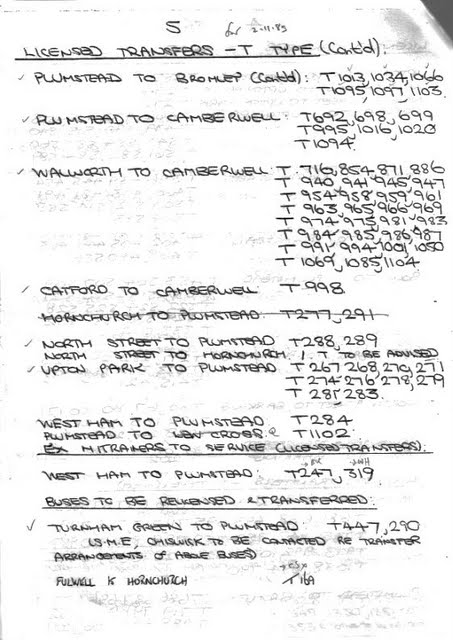 5 for 2-11-85
LICENSED TRANSFERS - T TYPE (Cont'd):
✓ PLUMSTEAD TO BROMLEY (Cont'd): T1013, 1034, 1066
T1095, 1097, 1103.
✓ PLUMSTEAD TO CAMBERWELL: T692, 698, 699
T995, 1016, 1020
T1094.
✓ WALWORTH TO CAMBERWELL: T 716, 854, 871, 886
T 940, 941, 945, 947
T 954, 958, 959, 961
T 963, 965, 966, 969
T 974, 975, 981, 983
T 984, 985, 986, 987
T 991, 994, 1001, 1050
T 1069, 1085, 1104
✓ CATFORD TO CAMBERWELL T 998
HORNCHURCH TO PLUMSTEAD T277, 291
✓ NORTH STREET TO PLUMSTEAD T288, 289
NORTH STREET TO HORNCHURCH 1. T TO BE ADVISED
✓ UPTON PARK TO PLUMSTEAD T 267, 268, 270, 271
T 274, 276, 278, 279
T 281, 283.
WEST HAM TO PLUMSTEAD T284
PLUMSTEAD TO NEW CROSS T1102
EX MITRAINERS TO SERVICE (LICENSED TRANSFERS):
WEST HAM TO PLUMSTEAD: T247, 319
BUSES TO BE RELICENSED & TRANSFERRED:
✓ TURNHAM GREEN TO PLUMSTEAD: T447, 290
(S.M.E, CHISWICK TO BE CONTACTED RE TRANSFER
ARRANGEMENTS OF ABOVE BUSES)
FULWELL TO HORNCHURCH T 16A